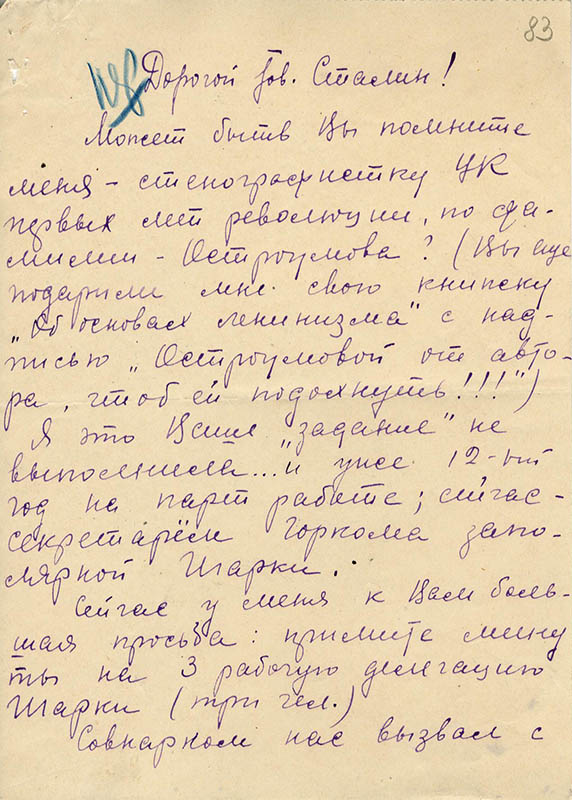 83
Дорогой Тов. Сталин!
Может быть Вы помните
меня – стенографистку ЦК
первых лет революции, по фа-
милии – Остроумова? (Вы еще
подарили мне свою книжку
„Об основах ленинизма" с над-
писью „Остроумовой от авто-
ра, чтоб ей подохнуть!!!")
Я это Ваше „задание" не
выполнила... и уже 12-ый
год на парт работе; сейчас –
секретарём Горкома запо-
лярной Игарки.
Сейчас у меня к Вам боль-
шая просьба: примите мину
ты на 3 рабочую делегацию
Игарки (три чел.)
Совнарком нас вызвал с